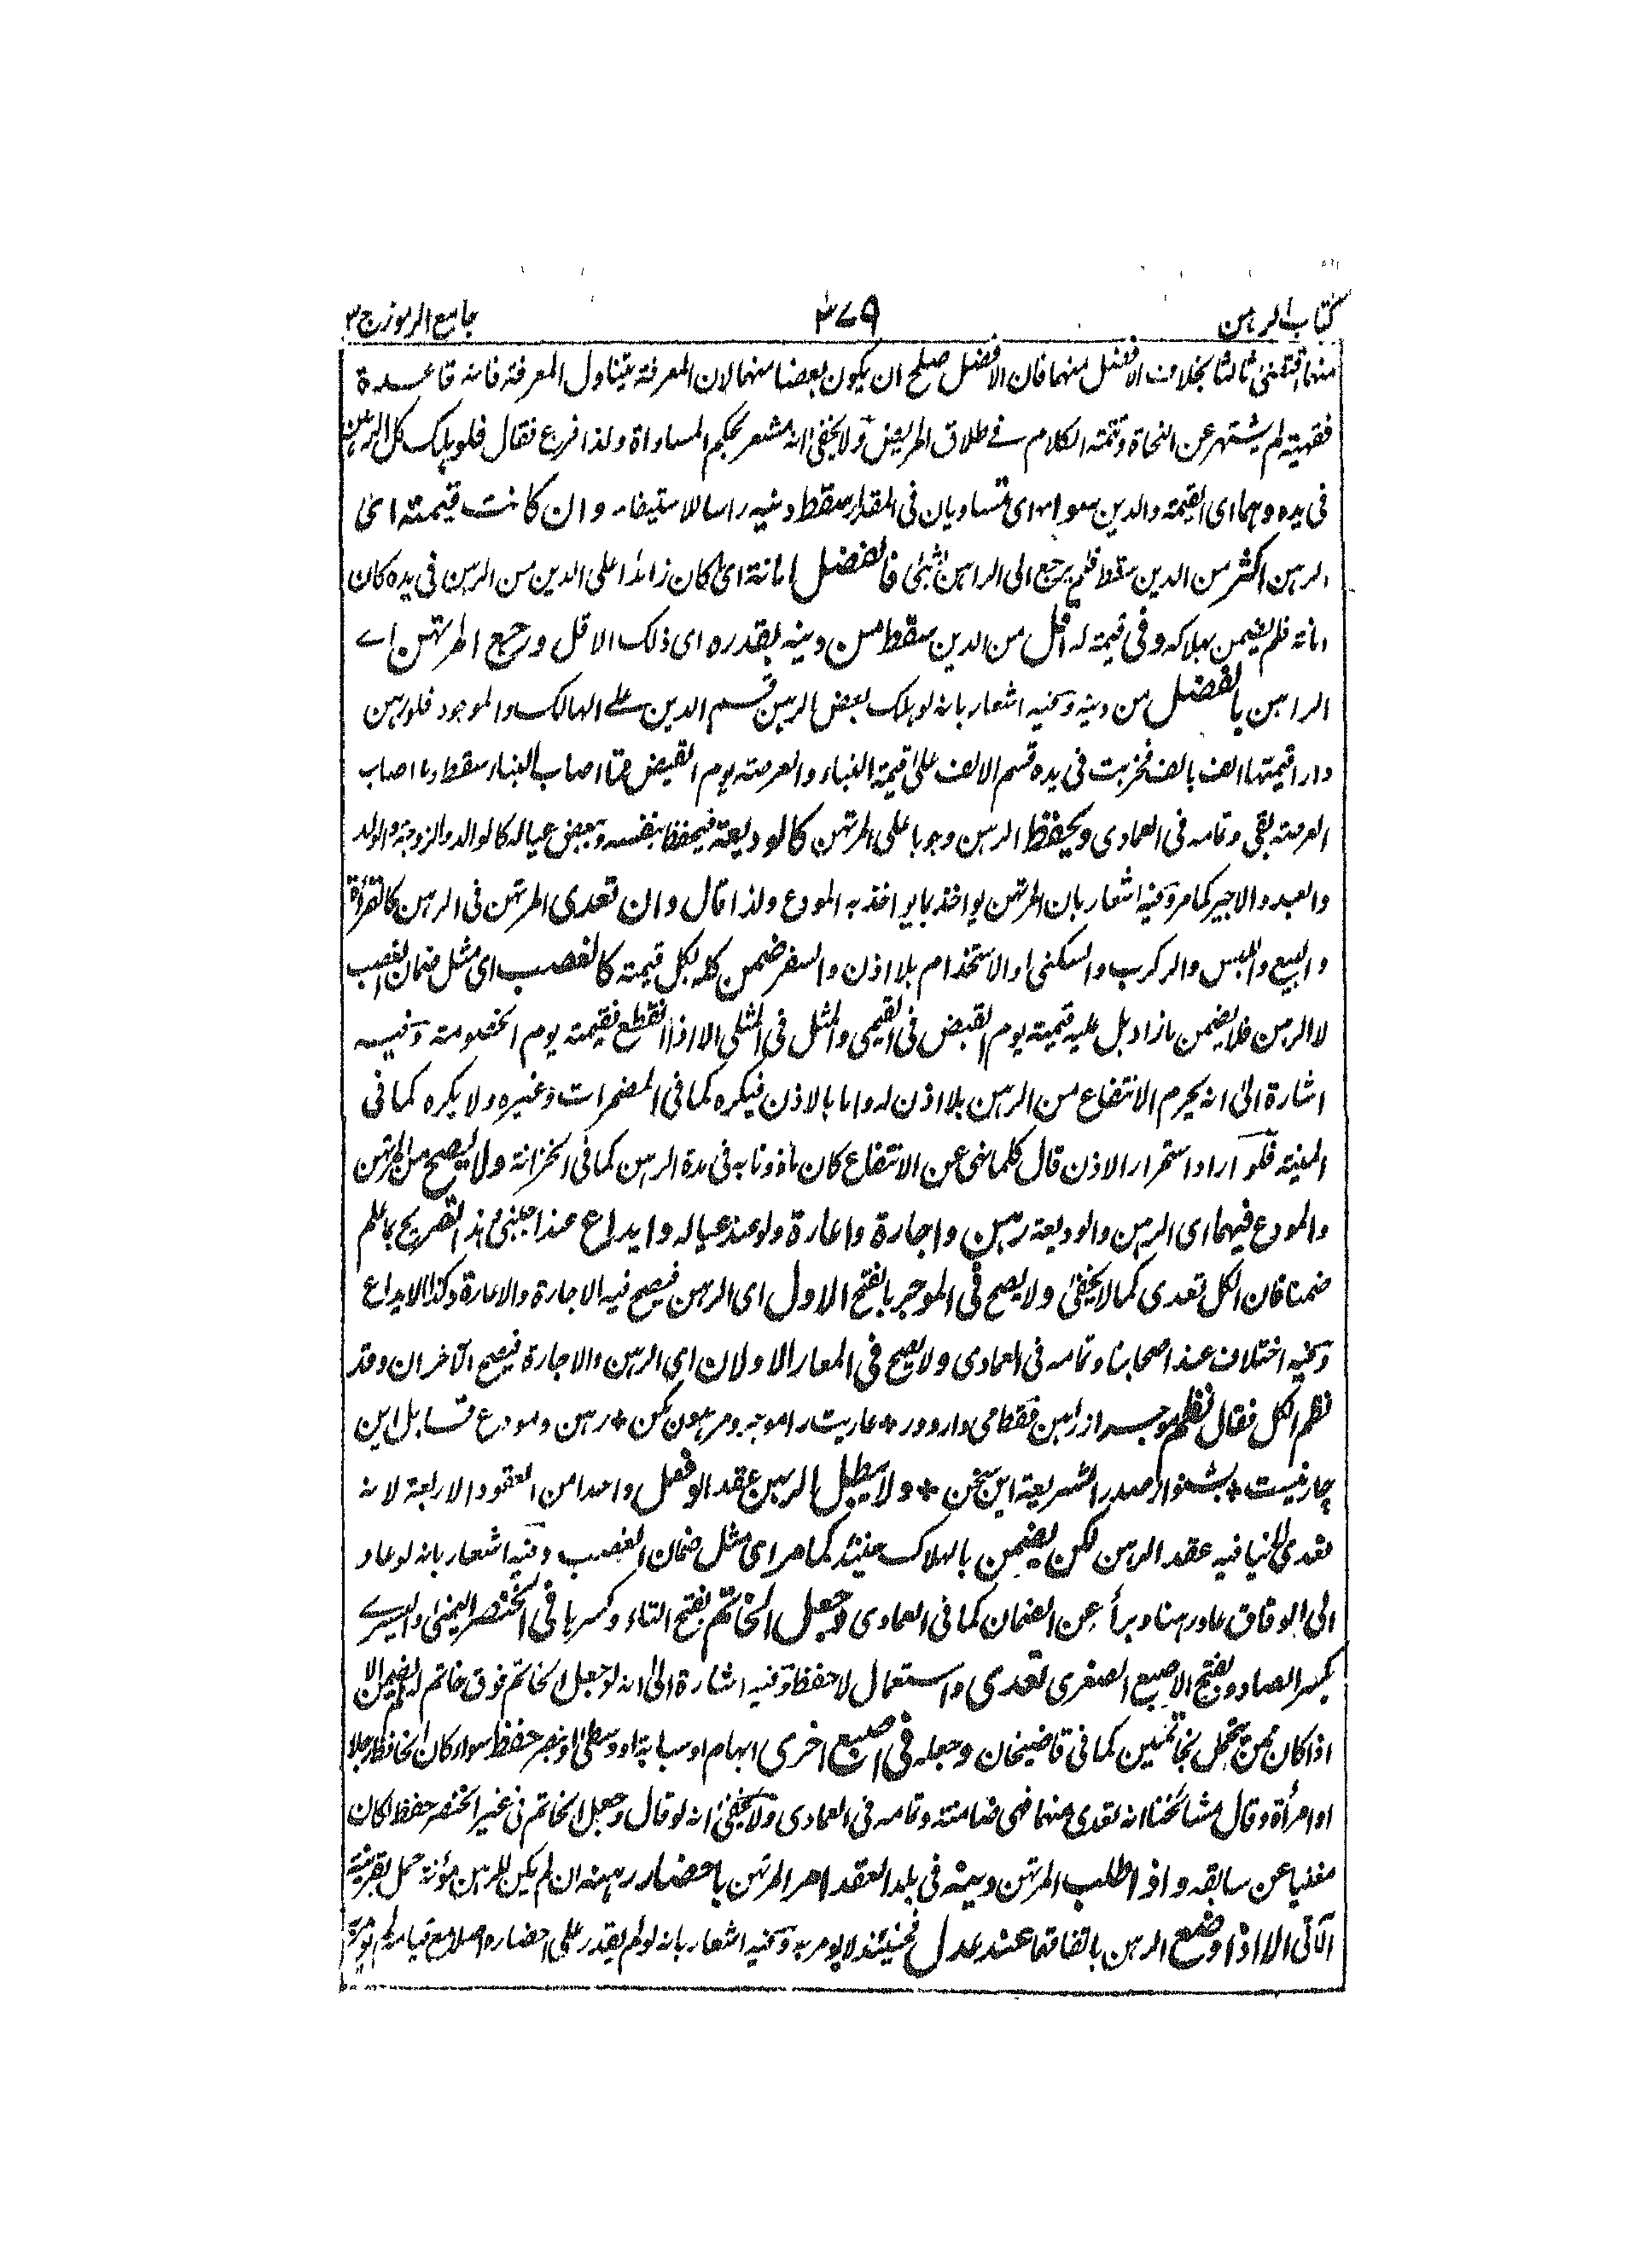 كتاب الرهن
٣٧٩
جامع الرموز ج ٣
منهما اقتضى ثالثا بخلاف الافضل منهما فان الافضل صلح ان يكون بعضا منهما لان المعرفة يتناول المعرفة فانه قاعدة
فقهية لم يشتهر عن النحاة وتتمة الكلام في طلاق المريض ولا يخفى انه مشعر بحكم المساواة ولذا فرع فقال فلو هلك كل الرهن
في يده وهما اى القيمة والدين سواء اى متساويان فى المقدار سقط دينه راسا لاستيفاء وان كانت قيمته اى
الرهن اكثر من الدين سقط فلم يرجع الى الراهن بشئ فالفضل امانة اى كان زائدا على الدين من الرهن فى يده كان
امانة فلم يضمن بهلاكه وفى قيمة له اقل من الدين سقط من دينه بقدره اى ذلك الاقل ورجع المرتهن اے
الراهن بالفضل من دينه وفيه اشعار بانه لو هلك بعض الرهن قسم الدين على الهالك والموجود فلو رهن
دارا قيمتها الف بالف فخربت فى يده قسم الالف على قيمة البناء والعرصة يوم القبض فما اصاب البناء سقط وما اصاب
العرصة بقى وتمامه فى العمادى ويحفظ الرهن وجوبا على المرتهن كالوديعة فيحفظ بنفسه وبعض عياله كالوالد والزوجة والولد
والعبد والاجير كما مر وفيه اشعار بان المرتهن يواخذ بما يواخذ به المودع ولذا قال وان تعدى المرتهن فى الرهن كالقراءة
والبيع واللبس والركوب والسكنى او الاستخدام بلا اذن والسفر ضمن كله بكل قيمته كالغصب اى مثل ضمان الغصب
لا الرهن فلا يضمن ما زاد بل عليه قيمته يوم القبض فى القيمى والمثل فى المثلى الا اذا انقطع فقيمته يوم الخصومة وفيه
اشارة الى انه يحرم الانتفاع من الرهن بلا اذن له واما بالاذن فيكره كما فى المضمرات وغيره ولا يكره كما فى
المنية فلو اراد استمرار الاذن قال كلما نهى عن الانتفاع كان ماذونا به فى مدة الرهن كما فى الخزانة ولا يصح من المرتهن
والمودع فيهما اى الرهن والوديعة رهن واجارة واعارة ولو عند عياله وايداع عند اجنبى هذا تصريح بما علم
ضمنا فان الكل تعدى كما لا يخفى ولا يصح فى الموجر بالفتح الاول اى الرهن فيصح فيه الاجارة والاعارة وكذا الايداع
وفيه اختلاف عند اصحابنا وتمامه فى العمادى ولا يصح فى المعار الاولان اى الرهن والاجارة فيصح الآخران وقد
نظم الكل فقال نظم موجر از راهن فقط مى دارو دور + عاريت را موجر ومرهون مكن + رهن ومودع قابل اين
چار نيست + بشنو از صدر الشريعة اين سخن + ولا يبطل الرهن عقد لو فعل واحدا من العقود الاربعة لانه
تعدى لا ينافيه عقد الرهن لكن يضمن بالهلاك حينئذ كما مر اى مثل ضمان الغصب وفيه اشعار بانه لو عاد
الى الوفاق عاد رهنا وبرأ عن الضمان كما فى العمادى وجعل الخاتم بفتح التاء وكسرها فى الخنصر اليمنى واليسرے
بكسر الصاد وبفتح الاصبع الصغرى تعدى واستعمال لا حفظ وفيه اشارة الى انه لو جعل الخاتم فوق خاتم لم يضمن الا
اذا كان ممن يتجمل بخاتمين كما فى قاضيخان وجعله فى اصبع اخرى ابهام او سبابة او وسطى او بنصر حفظ سواء كان الحافظ رجلا
او امرأة وقال مشائخنا انه تعدى منها فهى ضامنة وتمامه فى العمادى ولا يخفى انه لو قال وجعل الخاتم فى غير الخنصر حفظ لكان
مغنيا عن سابقه واذا طلب المرتهن دينه فى بلد العقد امر المرتهن باحضار رهنه ان لم يكن للرهن مؤنة حمل بقرينة
الآتى الا اذا وضع الرهن باتفاقهما عند عدل فحينئذ لا يومر به وفيه اشعار بانه لو لم يقدر على احضاره اصلا مع قيامه لم يومر